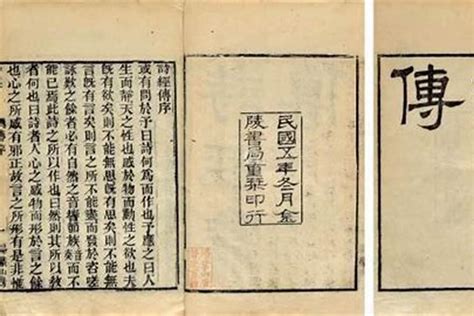 傳
民國五年冬月金
陵書局重栞印行
詩經傳序
或有問於予曰詩何爲而作也予應之曰人
生而靜天之性也感於物而動性之欲也夫
旣有欲矣則不能無思旣有思矣則不能無
言旣有言矣則言之所不能盡而發於咨嗟
詠歎之餘者必有自然之音響節族而不
能已焉此詩之所以作也曰然則其所以教
者何也曰詩者人心之感物而形於言之餘
也心之所感有邪正故言之所形有是非惟